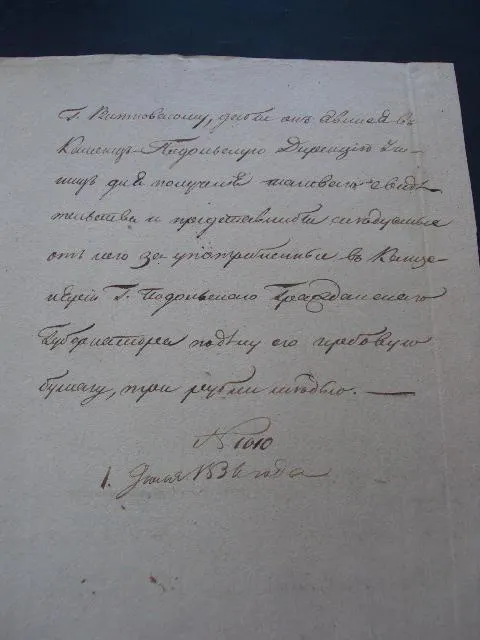 Г. Витковскому, дабы онъ явился въ
Каменецъ-Подольскую Дирекцію Учи-
лищъ для полученія таковаго свидѣ-
тельства и представилъ бы слѣдуемые
отъ него за употребленные въ Канце-
ляріи Г. Подольскаго Гражданскаго
Губернатора подъ сію его гербовую
бумагу, три рубли мѣдью. —
N 1010
1. Іюля 1836 года